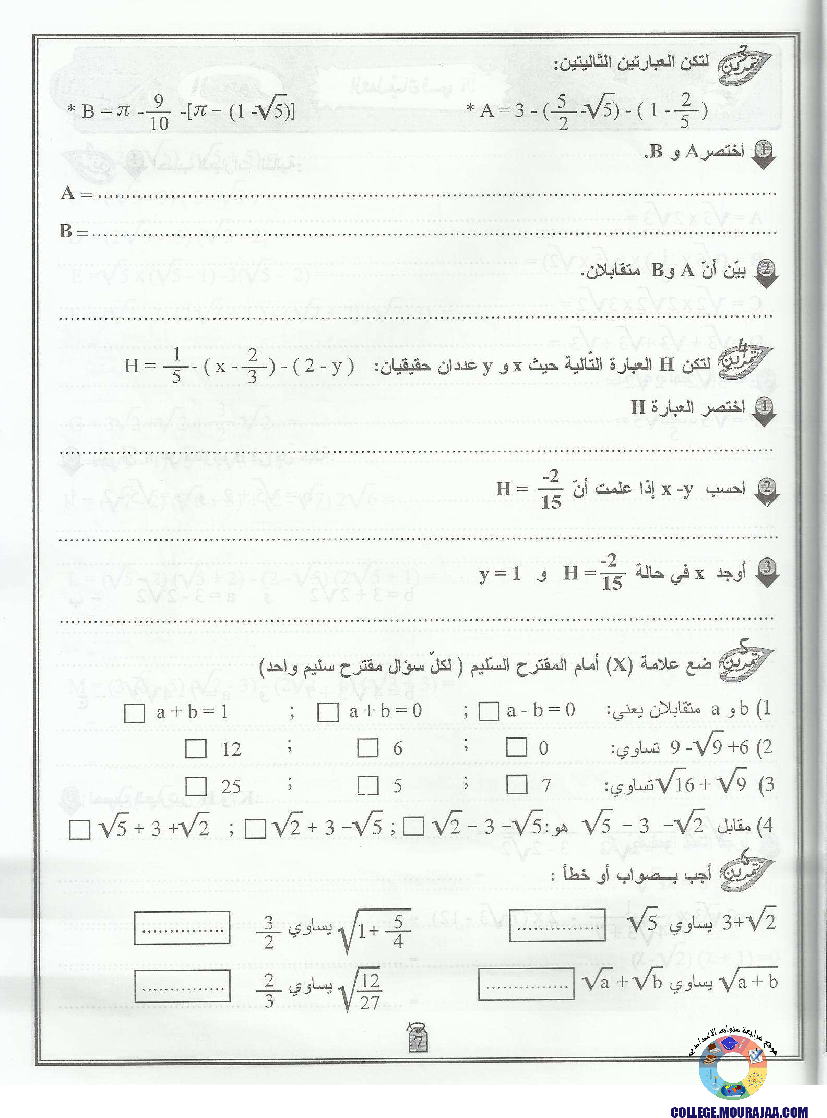 تمرين 3 لتكن العبارتين التاليتين:
* A = 3 - (5/2 - √5) - ( 1 - 2/5 ) * B = π - 9/10 - [π - (1 - √5)]
1 أختصر A و B.
A = ......................
B = ......................
2 بيّن أنّ A و B متقابلان.
......................
تمرين 4 لتكن H العبارة التّالية حيث x و y عددان حقيقيان: H = 1/5 - ( x - 2/3 ) - ( 2 - y )
1 اختصر العبارة H
......................
2 احسب x - y إذا علمت أنّ H = -2/15
......................
3 أوجد x في حالة H = -2/15 و y = 1
......................
تمرين 5 ضع علامة (X) أمام المقترح السّليم ( لكلّ سؤال مقترح سليم واحد)
1) a و b متقابلان يعني: □ a - b = 0 ; □ a + b = 0 ; □ a + b = 1
2) 9 - √9 + 6 تساوي: □ 0 ; □ 6 ; □ 12
3) √16 + √9 تساوي: □ 7 ; □ 5 ; □ 25
4) مقابل √5 - 3 - √2 هو: □ √2 - 3 - √5 ; □ √2 + 3 - √5 ; □ √5 + 3 + √2
تمرين 6 أجب بـصواب أو خطأ :
3+√2 يساوي √5 ............... √(1 + 5/4) يساوي 3/2 ...............
√(a + b) يساوي √a + √b ............... √(12/27) يساوي 2/3 ...............
7
موقع مراجعة
COLLEGE.MOURAJAA.COM